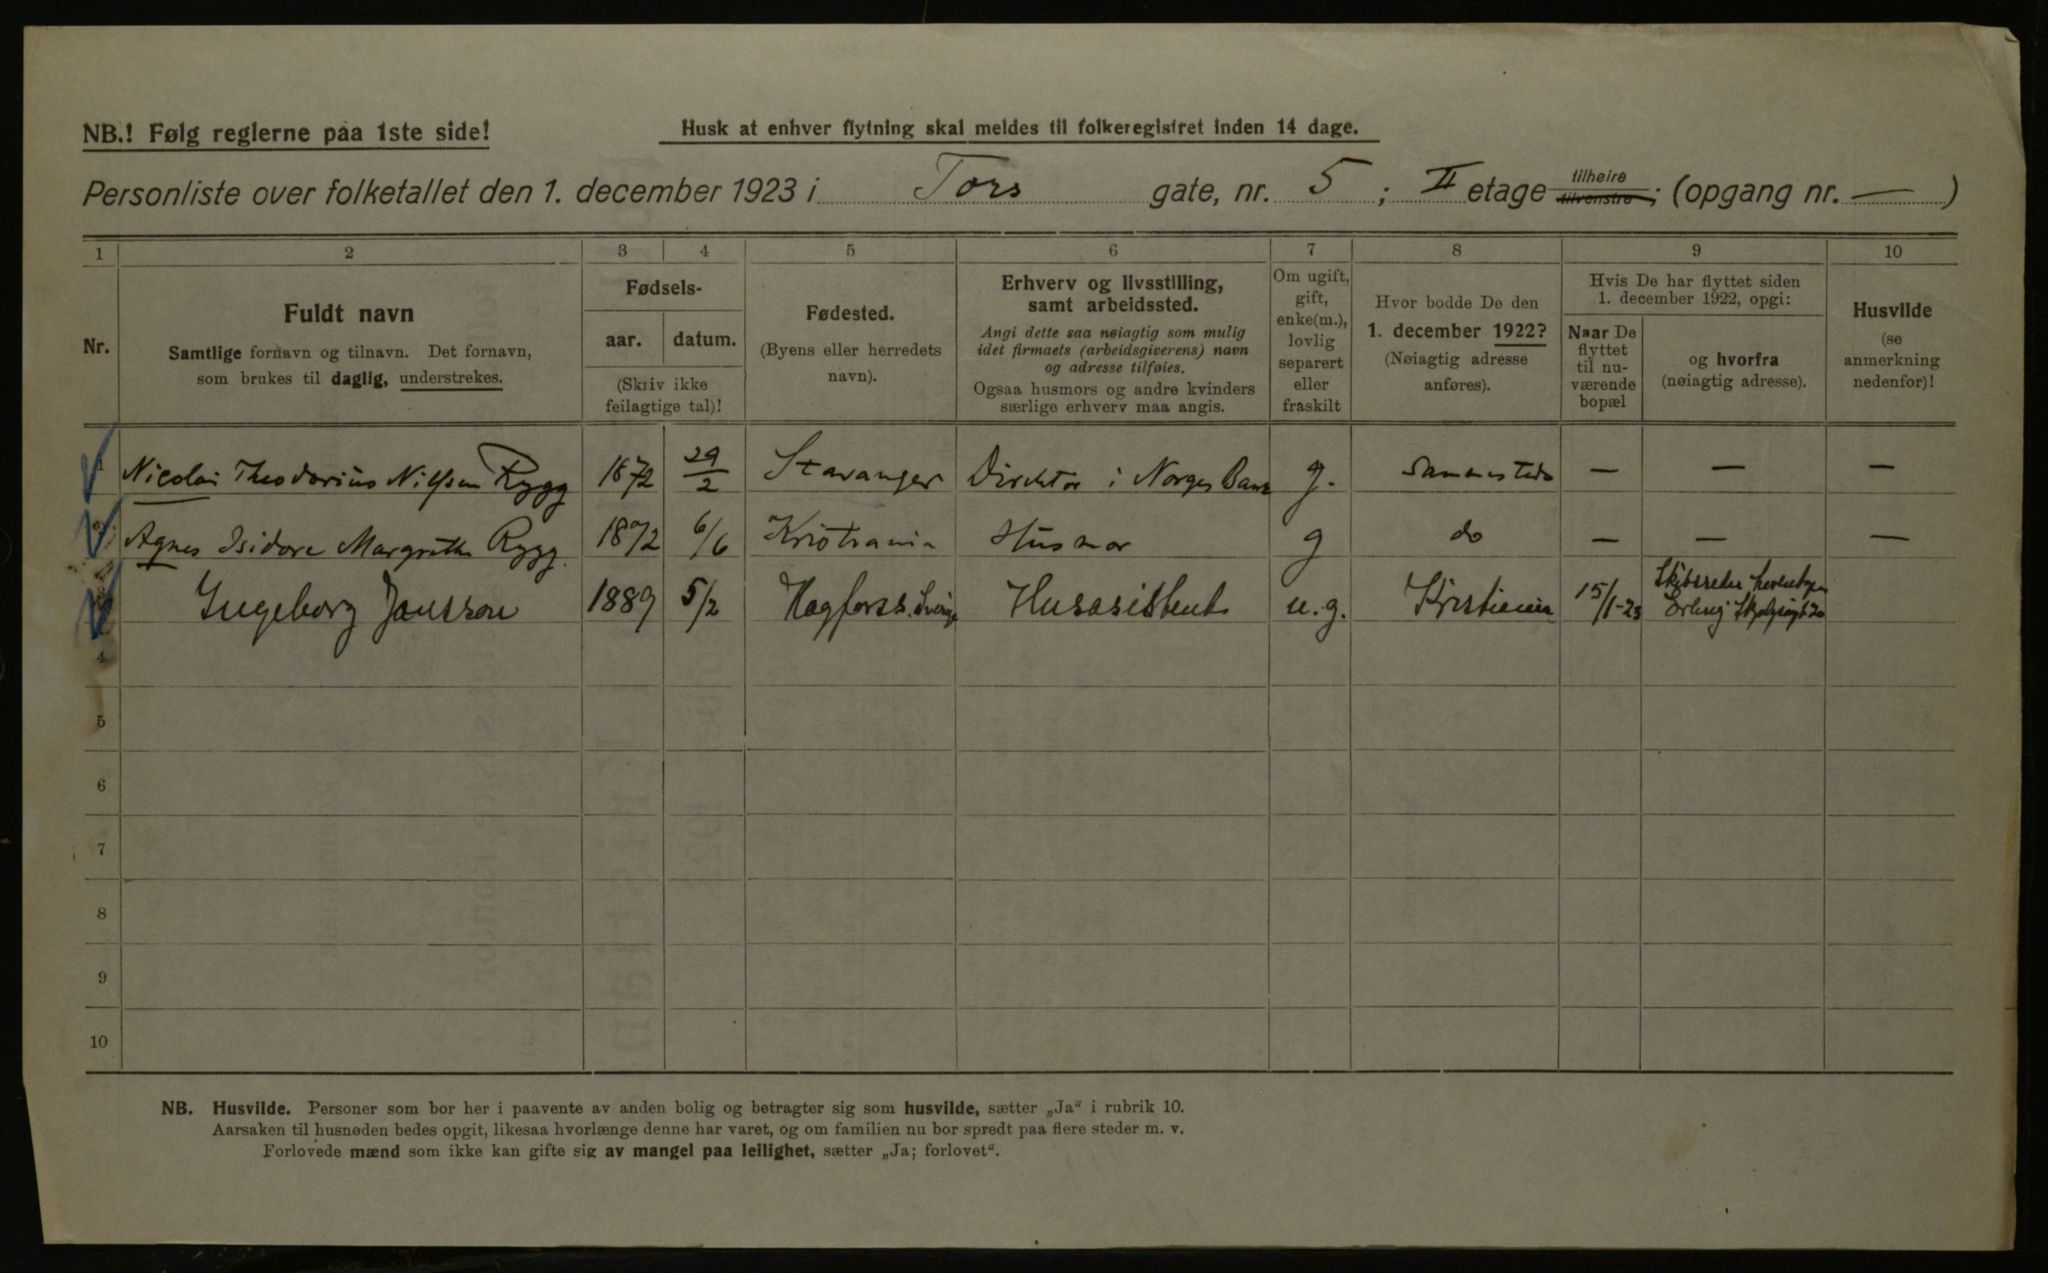 NB.! Følg reglerne paa 1ste side!
Husk at enhver flytning skal meldes til folkeregistret inden 14 dage.
Personliste over folketallet den 1. december 1923 i Tors gate, nr. 5 ; II etage tilheire tilvenstre ; (opgang nr. — )
1 2 3 4 5 6 7 8 9 10
Nr.
Fuldt navn
Samtlige fornavn og tilnavn. Det fornavn,
som brukes til daglig, understrekes.
Fødsels-
aar. datum.
(Skriv ikke
feilagtige tal)!
Fødested.
(Byens eller herredets
navn).
Erhverv og livsstilling,
samt arbeidssted.
Angi dette saa nøiagtig som mulig
idet firmaets (arbeidsgiverens) navn
og adresse tilføies.
Ogsaa husmors og andre kvinders
særlige erhverv maa angis.
Om ugift,
gift,
enke(m.),
lovlig
separert
eller
fraskilt
Hvor bodde De den
1. december 1922?
(Nøiagtig adresse
anføres).
Hvis De har flyttet siden
1. december 1922, opgi:
Naar De
flyttet
til nu-
værende
bopæl
og hvorfra
(nøiagtig adresse).
Husvilde
(se
anmerkning
nedenfor)!
1 Nicolai Theodorius Nilsen Rygg 1872 29/2 Stavanger Direktør i Norges Bank g. Sammesteds — — —
2 Agnes Isidore Margrethe Rygg. 1872 6/6 Kristiania Husmor g do — — —
3 Ingeborg Jansson 1889 5/2 Hagforss. Sverige Husasistent u.g. Kristiania 15/1-23 Skibsreder
Erling
4
5
6
7
8
9
10
NB. Husvilde. Personer som bor her i paavente av anden bolig og betragter sig som husvilde, sætter „Ja“ i rubrik 10.
Aarsaken til husnøden bedes opgit, likesaa hvorlænge denne har varet, og om familien nu bor spredt paa flere steder m. v.
Forlovede mænd som ikke kan gifte sig av mangel paa leilighet, sætter „Ja; forlovet“.